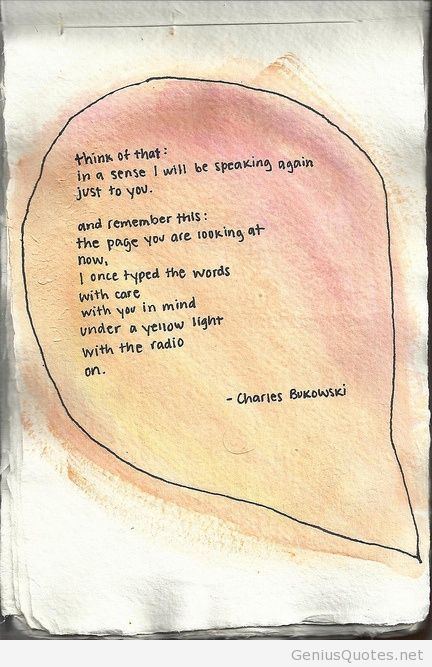 think of that:
in a sense I will be speaking again
just to you.
and remember this:
the page you are looking at
now,
I once typed the words
with care
with you in mind
under a yellow light
with the radio
on.
- Charles Bukowski
GeniusQuotes.net